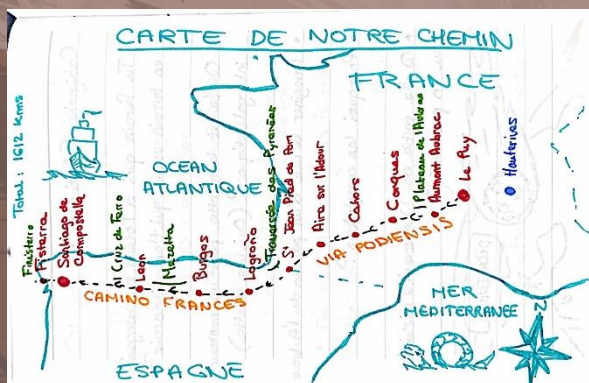 CARTE DE NOTRE CHEMIN
FRANCE
Total : 1612 Kms
OCEAN
ATLANTIQUE
Finistère
Fisterra
Santiago de
Compostelle
Cruz de Ferro
Leon
Mezetta
Burgos
Logroño
Traversée des Pyrenées
St Jean Pied de Port
Aire sur l'Adour
Cahors
Conques
Plateau de l'Aubrac
Aumont Aubrac
Le Puy
Hauterives
VIA PODIENSIS
CAMINO FRANCES
MER
MEDITERRANEE
N
ESPAGNE